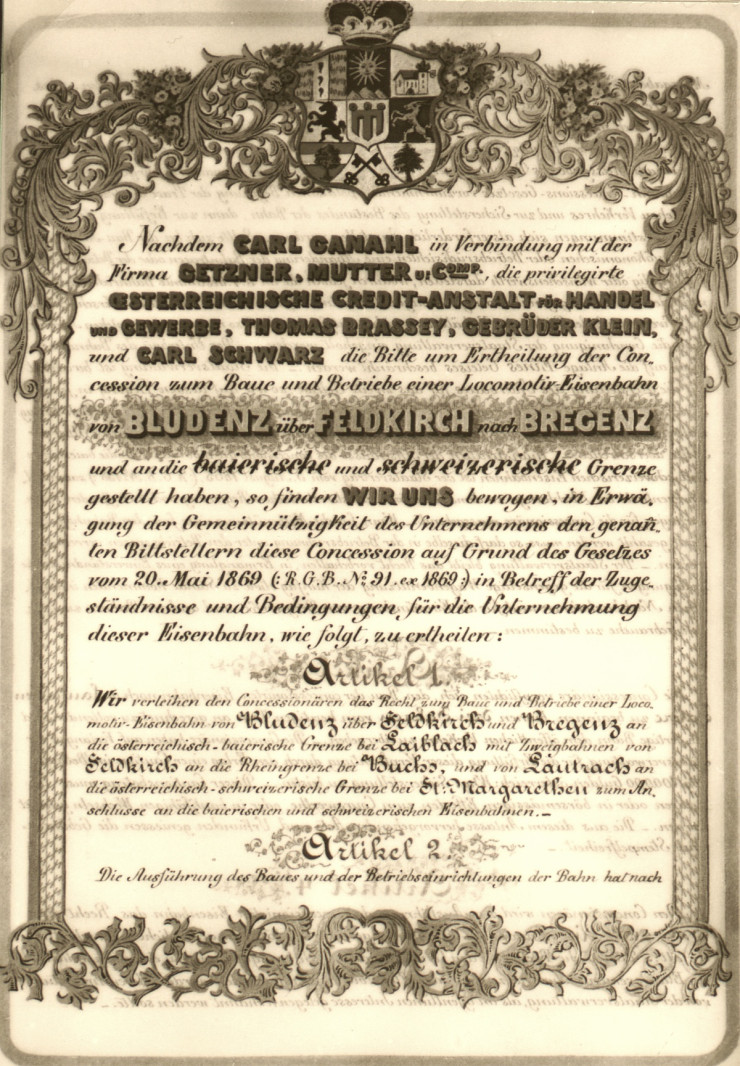 Nachdem CARL GANAHL in Verbindung mit der
Firma GETZNER, MUTTER u: COMP., die privilegirte
ŒSTERREICHISCHE CREDIT-ANSTALT FÜR HANDEL
UND GEWERBE, THOMAS BRASSEY, GEBRÜDER KLEIN,
und CARL SCHWARZ die Bitte um Ertheilung der Con-
cession zum Baue und Betriebe einer Locomotiv-Eisenbahn
von BLUDENZ über FELDKIRCH nach BREGENZ
und an die baierische und schweizerische Grenze
gestellt haben, so finden WIR UNS bewogen, in Erwä-
gung der Gemeinnützigkeit des Unternehmens den genañ-
ten Bittstellern diese Concession auf Grund des Gesetzes
vom 20. Mai 1869 (: R.G.B. No 91. ex 1869:) in Betreff der Zuge-
ständnisse und Bedingungen für die Unternehmung
dieser Eisenbahn, wie folgt, zu ertheilen:
Artikel 1.
Wir verleihen den Concessionären das Recht zum Baue und Betriebe einer Loco-
motiv-Eisenbahn von Bludenz über Feldkirch und Bregenz an
die österreichisch-baierische Grenze bei Laiblach mit Zweigbahnen von
Feldkirch an die Rheingrenze bei Buchs, und von Lautrach an
die österreichisch-schweizerische Grenze bei St. Margarethen zum An-
schlusse an die baierischen und schweizerischen Eisenbahnen.–
Artikel 2.
Die Ausführung des Baues und der Betriebseinrichtungen der Bahn hat nach